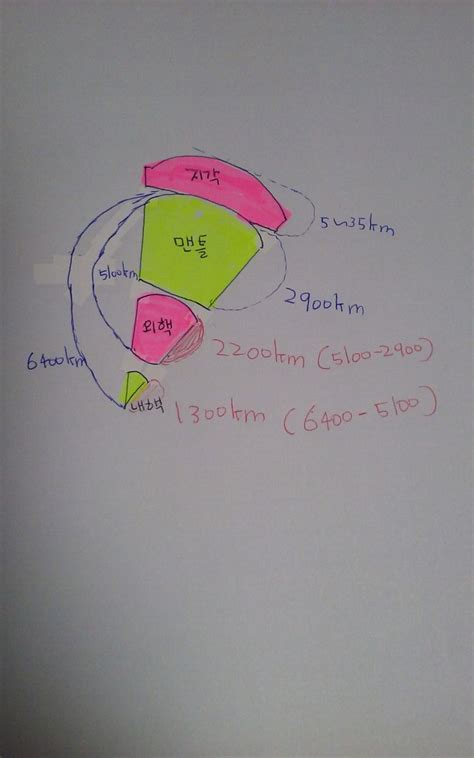 지각
5~35km
맨틀
5100km
2900km
외핵
2200km (5100-2900)
6400km
내핵
1300km (6400-5100)